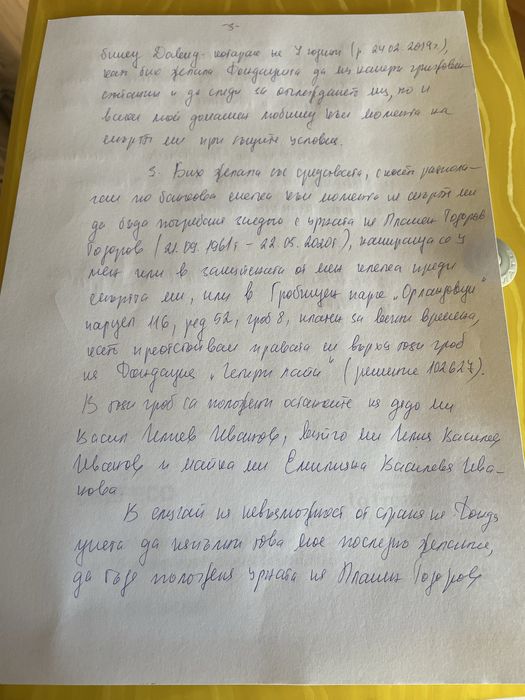 -3-
бимец Давид, котарак на 4 години (р. 24.02.2019г.),
като бих желала Фондацията да му намери грижовен
стопанин и да следи за отглеждането му, но и
всеки мой домашен любимец към момента на
смъртта ми при същите условия.
3. Бих желала със средствата, с които разпола-
гам по банковата сметка към момента на смъртта ми
да бъда погребана заедно с урната на Пламен Тодоров
Тодоров (21.09.1961г. – 22.05.2020г.), намираща се у
мен или в от мен преди
смъртта ми, или в Гробищен парк „Орландовци"
парцел 116, ред 52, гроб 8, платен за вечни времена,
като преотстъпвам правата си върху този гроб
на Фондация „Четири лапи" (решение 102627).
В този гроб са положени останките на дядо ми
Васил Илиев Иванов, вуйчо ми Илия Василев
Иванов и майка ми Емилияна Василева Ива-
нова.
В случай на невъзможност от страна на Фонда-
цията да изпълни това мое последно желание,
да бъде положена урната на Пламен Тодоров